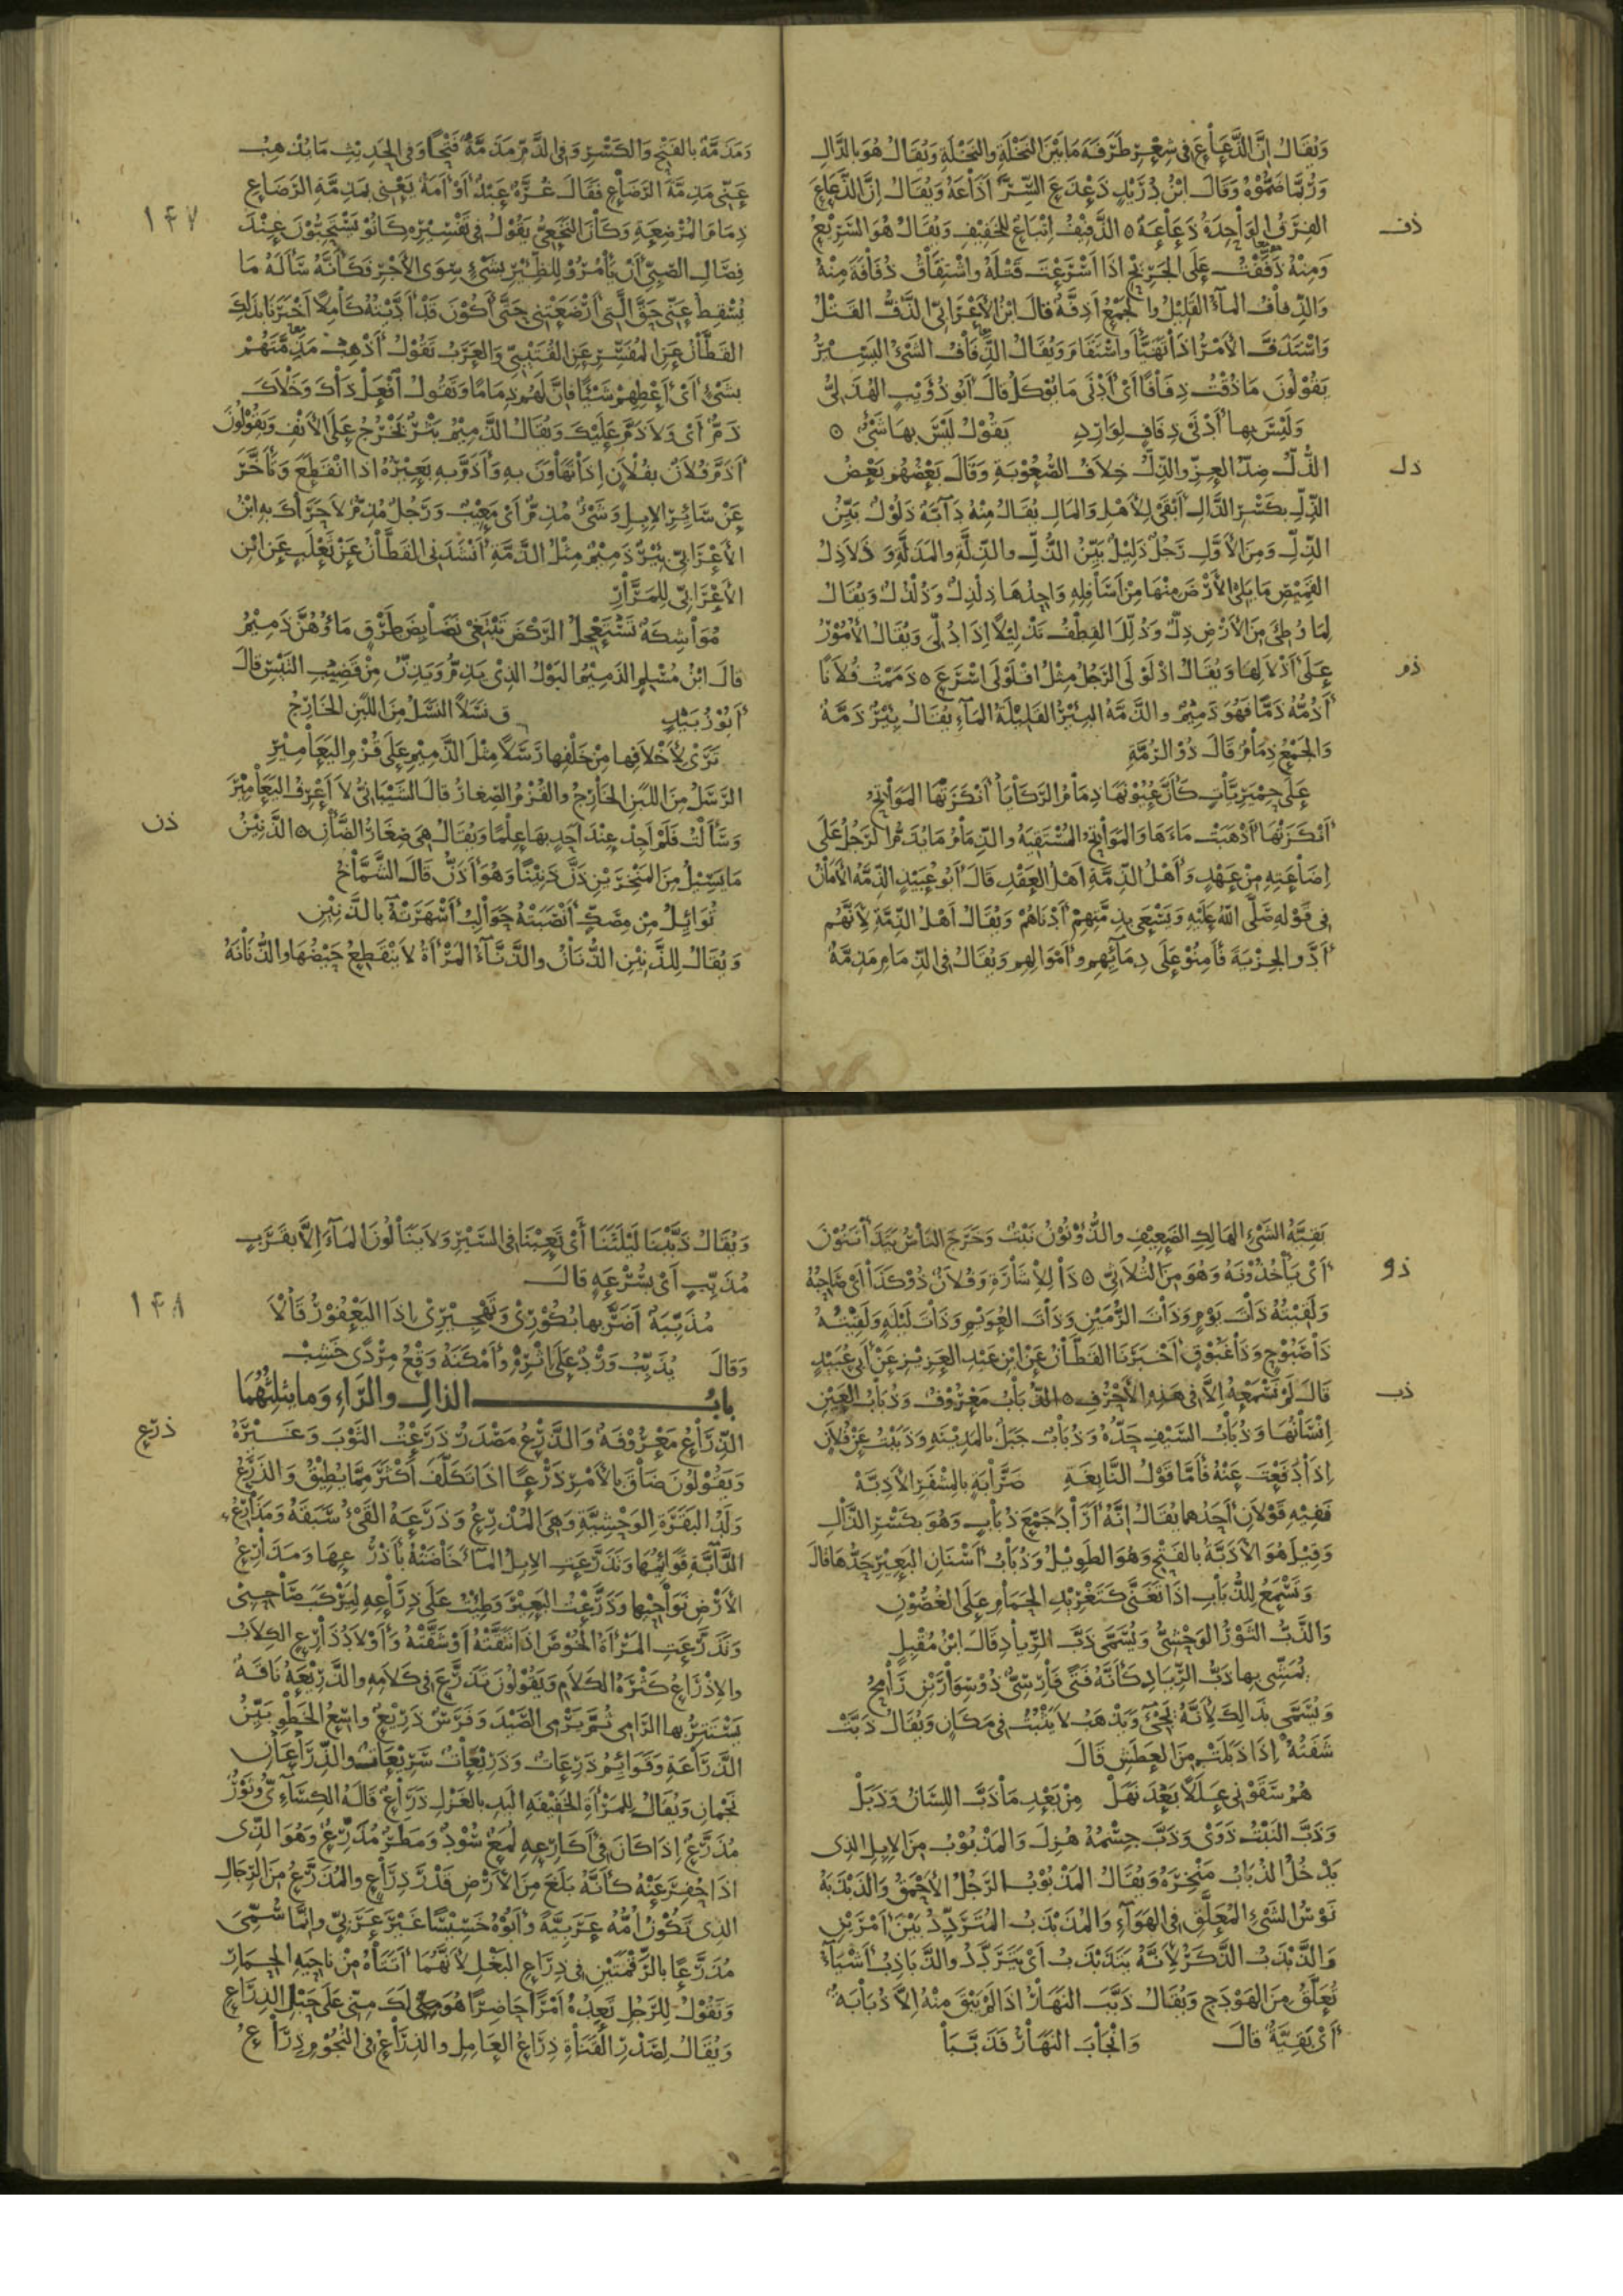 ويقال ان الذعاع في شعر طرفة ما بين النخلة والنخلة ويقال هو بالدال
وربما ضموه وقال ابن دريد ذعذع السر اذاعه ويقال ان الذعاع
ذف
الفرق الواحدة ذعاعة ٥ الذفيف اتباع للخفيف ويقال هو السريع
ومنه ذففت على الجريح اذا اسرعت قتله واشتقاق ذفافة منه
والذفاف الماء القليل والجمع اذفة قال ابن الاعرابي الذف القتل
واستذف الامر اذا تهيأ واستقام ويقال الذفاف الشيء اليسير
يقولون ما ذقت ذفافا اي ادنى ما يوكل قال ابو ذؤيب الهذلي
وليس بها ادنى ذفاف لوارد يقول ليس بها شيء ٥
ذل
الذل ضد العز والذل خلاف الصعوبة وقال بعضهم بعض
الذل بكسر الذال ابقى للاهل والمال يقال منه دابة ذلول بين
الذل ومن الاول رجل ذليل بين الذل والذلة والمذلة و ذلاذل
القميص ما يلي الارض منها من اسافله واحدها ذلذل وذلذل ويقال
لما وطئ من الارض ذل وذلل القطف تذليلا اذا دلي ويقال الامور
ذم
على اذلالها ويقال اذلولى الرجل مثل افلولى اسرع ٥ ذممت فلانا
اذمه ذما فهو ذميم والذمة البئر القليلة الماء يقال بئر ذمة
والجمع ذمام قال ذو الرمة
على حميريات كأن عيونها ذمام الركايا انكزتها المواتح
انكزتها اذهبت ماءها والمواتح المستقية والذمام ما يذم الرجل على
اضاعته من عهد واهل الذمة اهل العقد قال ابو عبيد الذمة الامان
في قوله صلى الله عليه ويسعى بذمتهم ادناهم ويقال اهل الذمة لانهم
ادوا الجزية فامنوا على دمائهم واموالهم ويقال في الذمام مذمة
ومذمة بالفتح والكسر وفي الذم مذمة فتحا وفي الحديث ما يذهب
عني مذمة الرضاع فقال غرة عبد او امة يعني بمذمة الرضاع
١٤٧
ذمام المرضعة وكان النخعي يقول في تفسيره كانوا يستحبون عند
فصال الصبي ان يأمروا للظئر بشيء سوى الاجر فكأنه سأله ما
يسقط عني حق التي ارضعتني حتى اكون قد اديته كاملا اخبرنا بذلك
القطان عن المفسر عن القتيبي والعرب تقول اذهب مذمتهم
بشيء اي اعطهم شيئا فان لهم ذماما وتقول افعل ذاك وخلاك
ذم اي ولا ذم عليك ويقال الذميم بثر يخرج على الانف ويقولون
اذم فلان بفلان اذا تهاون به واذم به بعيره اذا انقطع وتأخر
عن سائر الابل وشيء مذم اي معيب ورجل مذم لا حراك به ابن
الاعرابي بئر ذميم مثل الذمة انشدني القطان عن ثعلب عن ابن
الاعرابي للمرار
مواشكة تستعجل الركض تبتغي نضائض طرق ماؤهن ذميم
قال ابن مسلم الذميم البول الذي يذم ويذن من قضيب التيس قال
ابو زبيد ق نسلا النسل من اللبن الخارج
ترى لاخلافها من خلفها رسلا مثل الذميم على قزم اليعامير
الرسل من اللبن الخارج والقزم الصغار قال الشيباني لا اعرف اليعامير
ذن
وسألت فلم اجد عند احد بها علما ويقال هي صغار الضأن ٥ الذنين
ما يسيل من المنخرين ذن ذنينا وهو اذن قال الشماخ
توائل من مصك انصبته حوالب اسهرته بالذنين
ويقال للذنين الذنان والذناء المرأة لا ينقطع حيضها والذنانة
بقية الشيء الهالك الضعيف والذؤنون نبت وخرج الناس يتذأننون
ذو
اي يأخذونه وهو من الثلاثي ٥ ذا للاشارة وفلان ذو كذا اي صاحبه
ولقيته ذات يوم وذات الزمين وذات العويم وذات ليلة ولقيته
ذا صبوح وذا غبوق اخبرنا القطان عن ابن عبد العزيز عن ابي عبيد
ذب
قال لم نسمعه الا في هذه الاحرف ٥ الذباب معروف وذباب العين
انسانها وذباب السيف حده وذباب جبل بالمدينة وذببت عن فلان
اذا دفعت عنه فأما قول النابغة ضرابة بالمشفر الاذبة
ففيه قولان احدهما يقال انه اراد جمع ذباب وهو بكسر الذال
وقيل هو الاذبة بالفتح وهو الطويل وذباب اسنان البعير حدها قال
وتسمع للذباب اذا تغنى كتغريد الحمام على الغصون
والذب الثور الوحشي ويسمى ذب الرياد قال ابن مقبل
يمشي بها ذب الرياد كأنه فتى فارسي ذو سوارين رامح
ويسمى بذلك لانه يجيء ويذهب لا يثبت في مكان ويقال ذبت
شفته اذا ذبلت من العطش قال
هم سقوني عللا بعد نهل من بعد ما ذب اللسان وذبل
وذب النبت ذوى وذب جسمه هزل والمذبوب من الابل الذي
يدخل الذباب منخره ويقال المذبوب الرجل الاحمق والذبذبة
نوس الشيء المعلق في الهواء والمذبذب المتردد بين امرين
والذبذب الذكر لانه يتذبذب اي يتردد والذباذب اشياء
تعلق من الهودج ويقال ذبب النهار اذا لم يبق منه الا ذبابة
اي بقية قال وانجاب النهار فذببا
ويقال ذببنا ليلتنا اي تعبنا في السير ولا ينالون الماء الا بقرب
مذبب اي بسرعة قال
١٤٨
مذببة اضر بها بكوري وتهجيري اذا اليعفور قالا
وقال يذبب ورد على اثره وامكنه وقع مردى خشب
باب الذال والراء وما يثلثهما
ذرع
الذراع معروفة والذرع مصدر ذرعت الثوب وغيره
ويقولون ضاق بالامر ذرعا اذا تكلف اكثر مما يطيق والذرع
ولد البقرة الوحشية وهي المذرع وذرعه القيء سبقه ومذارع
الدابة قوائمها وتذرعت الابل الماء خاضته بأذرعها ومذارع
الارض نواحيها وذرعت البعير وطئت على ذراعه ليركب صاحبي
وتذرعت المرأة الخوص اذا نقته او شقته واولاد ذارع الكلاب
والاذراع كثرة الكلام ويقولون تذرع في كلامه والذريعة ناقة
يستتر بها الرامي ثم يرمي الصيد وفرس ذريع واسع الخطو بين
الذراعة وقوائم ذرعات وذريعات سريعات والذراعان
نجمان ويقال للمرأة الخفيفة اليد بالغزل ذراع قاله الكسائي وثور
مذرع اذا كان في اكارعه لمع سود ومطر مذرع وهو الذي
اذا حفر عنه كأنه بلغ من الارض قدر ذراع والمذرع من الرجال
الذي تكون امه عربية وابوه خسيسا غير عربي وانما سمي
مذرعا بالرقمتين في ذراع البغل لانهما اتتاه من ناحية الحمار
وتقول للرجل تعده امرا حاضرا هو لك مني على حبل الذراع
ويقال لصدر القناة ذراع العامل والذراع في النجوم ذراع